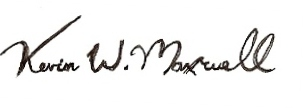 Kevin W. Maxwell